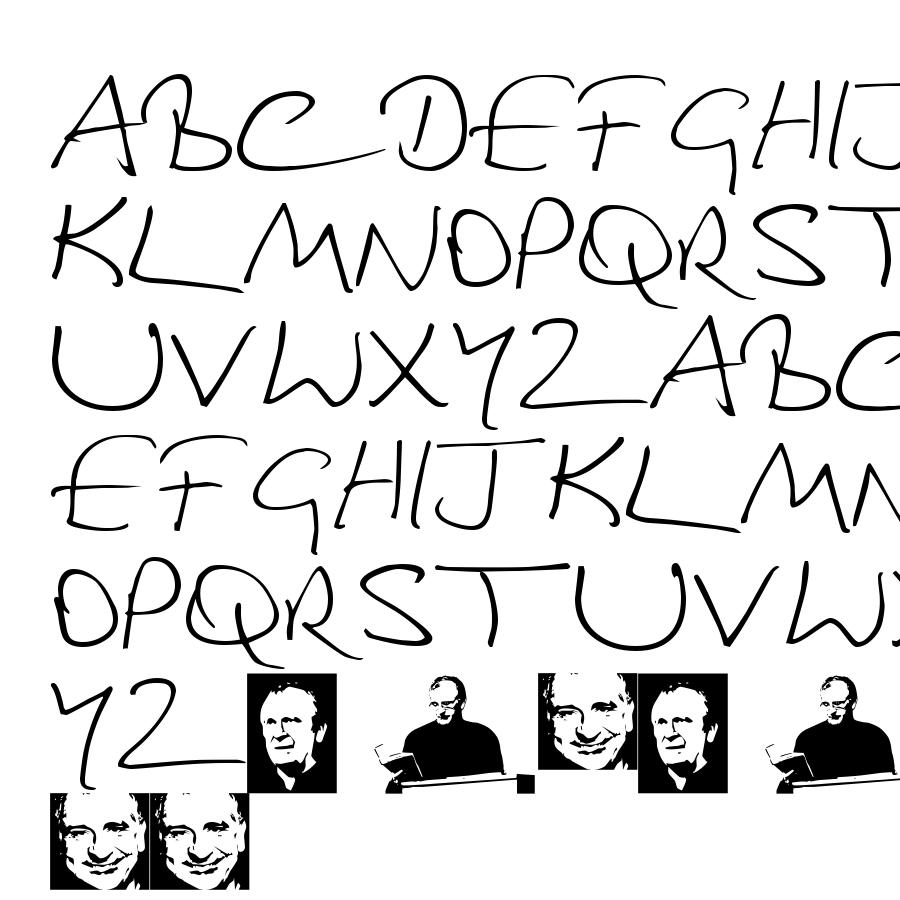 ABCDEFGHIJ
KLMNOPQRST
UVWXYZABC
EFGHIJKLMN
OPQRSTUVWX
YZ